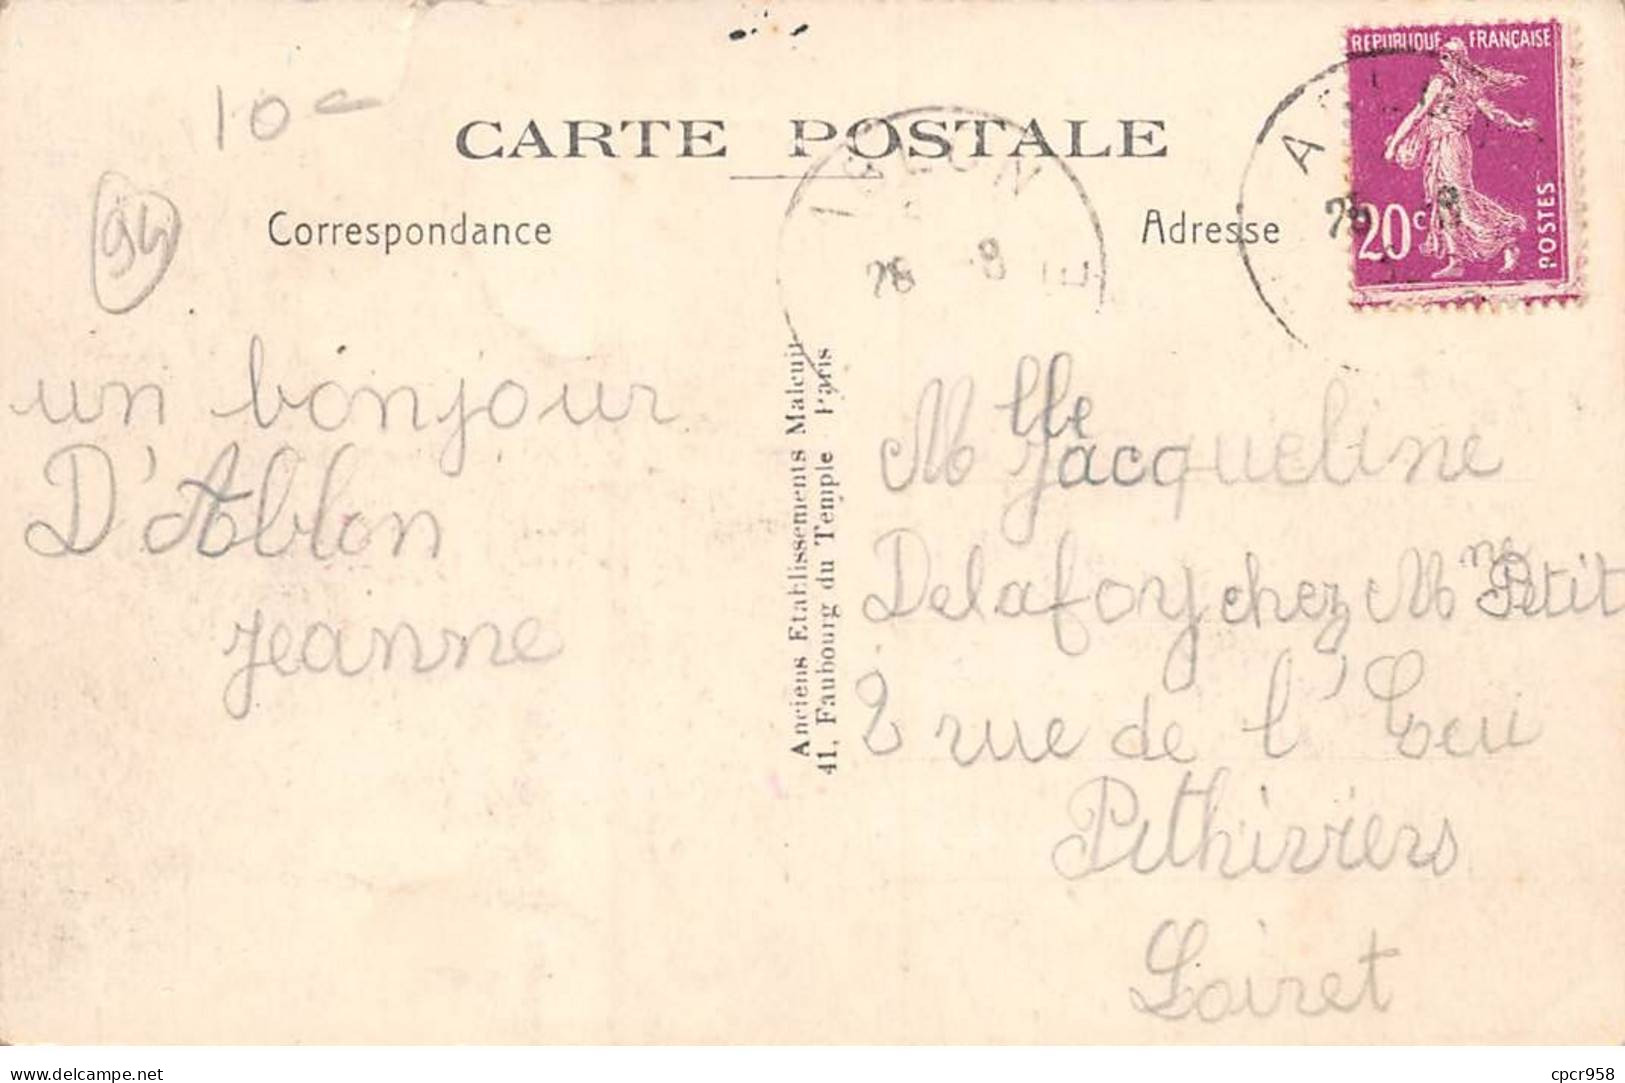 REPUBLIQUE FRANÇAISE
10 c
CARTE POSTALE
94
Correspondance
Adresse
20c
POSTES
28 -8
E
28 -8
un bonjour
D'Ablon
jeanne
Anciens Etablissements Malcuit
41, Faubourg du Temple Paris
Mlle Jacqueline
Delafoy chez Mme Petit
2 rue de l'
Pithiviers
Loiret
delcampe.net
cpcr958